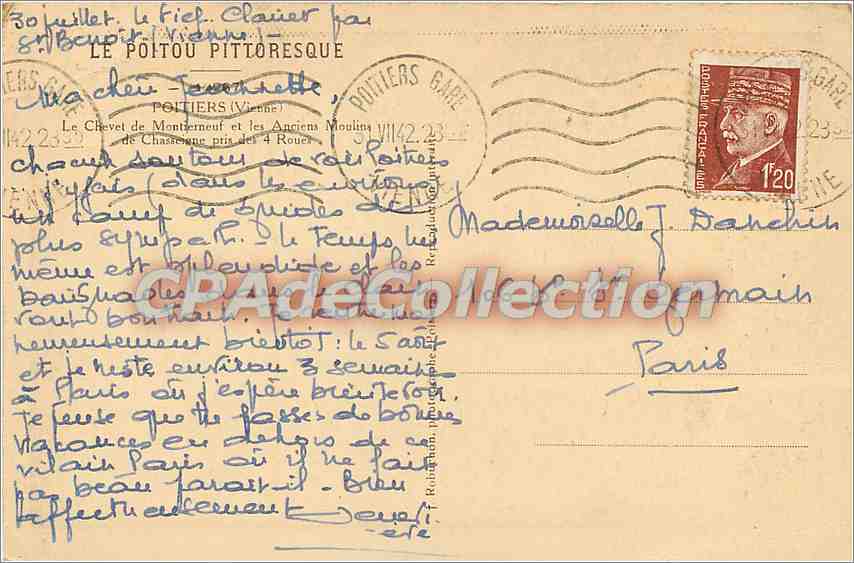 30 juillet. le Fief Clairet par
St Benoît (Vienne) -
LE POITOU PITTORESQUE
Ma chère Jeannette,
POITIERS (Vienne)
Le Chevet de Montierneuf et les Anciens Moulins
de Chasseigne pris des 4 Roues
POITIERS GARE
VII42.23
VIENNE
POSTES FRANÇAISES
1F20
de Poitiers
j'y fais (dans les environs
un camp de guides des
plus sympath. - le temps lui
même est splendide et les
baignades
vont bon train.
heureusement bientôt: le 5 août
et je reste environ 3 semaines
à Paris où j'espère bien te voir.
Je pense que tu passes de bonnes
vacances en dehors de ce
vilain Paris où il ne fait
pas beau parait-il - Bien
affectueusement
Mademoiselle J Danchin
166 Bd St Germain
Paris
CPAdeCollection
Robuchon, photographe, Poitiers
Reproduction interdite